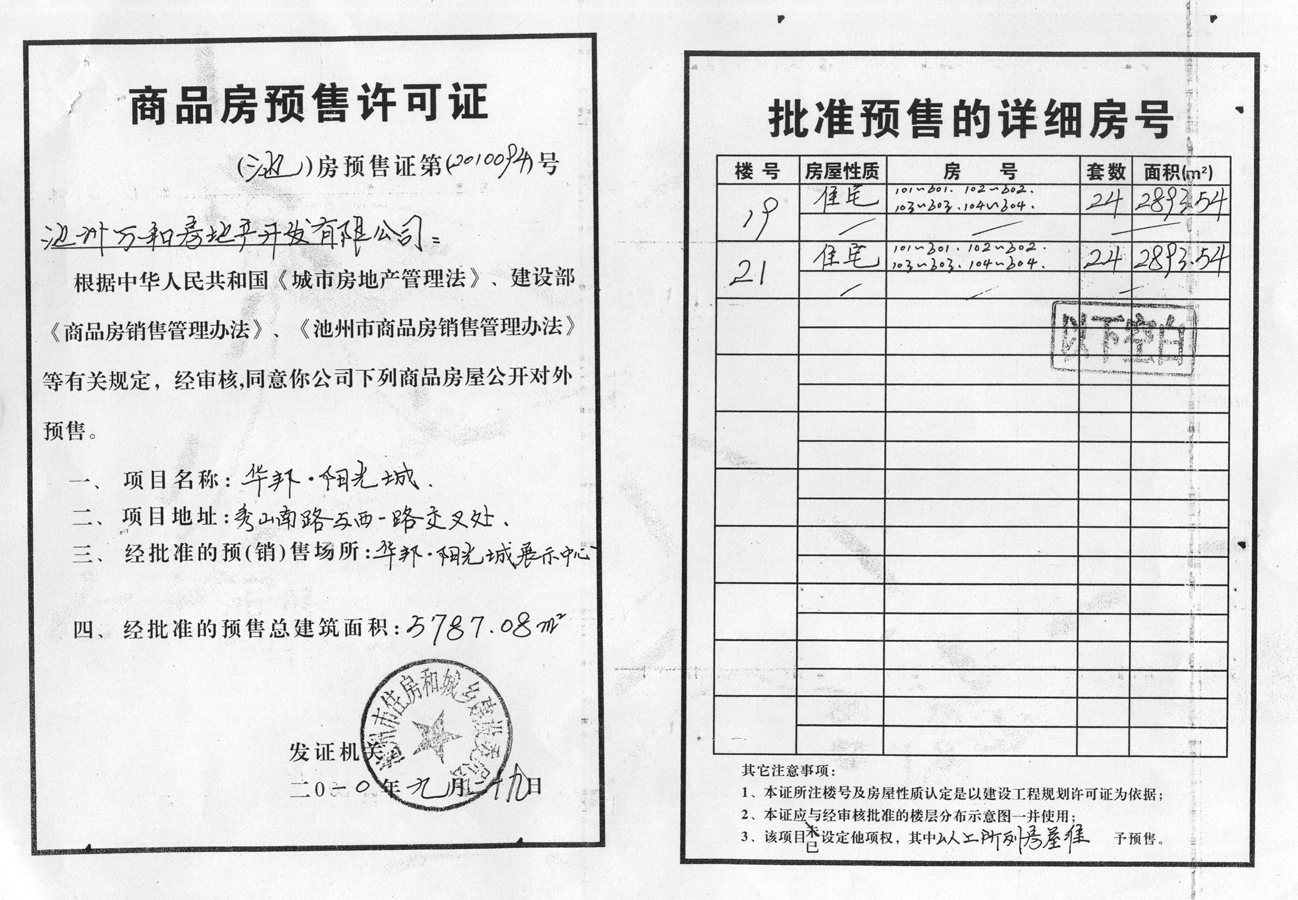 商品房预售许可证
(池)房预售证第(2010094)号
池州万和房地产开发有限公司:
根据中华人民共和国《城市房地产管理法》、建设部
《商品房销售管理办法》、《池州市商品房销售管理办法》
等有关规定，经审核,同意你公司下列商品房屋公开对外
预售。
一、项目名称:华邦·阳光城.
二、项目地址:秀山南路与西一路交叉处.
三、经批准的预(销)售场所:华邦·阳光城展示中心
四、经批准的预售总建筑面积:5787.08m²
池州市住房和城乡建设委员会
发证机关
二0一0年九月二十九日
批准预售的详细房号
楼号 房屋性质 房号 套数 面积(m²)
19 住宅 101~601. 102~602. 24 2893.54
103~603. 104~604.
21 住宅 101~601. 102~602. 24 2893.54
103~603. 104~604.
以下空白
其它注意事项:
1、本证所注楼号及房屋性质认定是以建设工程规划许可证为依据;
2、本证应与经审核批准的楼层分布示意图一并使用;
3、该项目未已设定他项权，其中以上所列房屋准予预售。